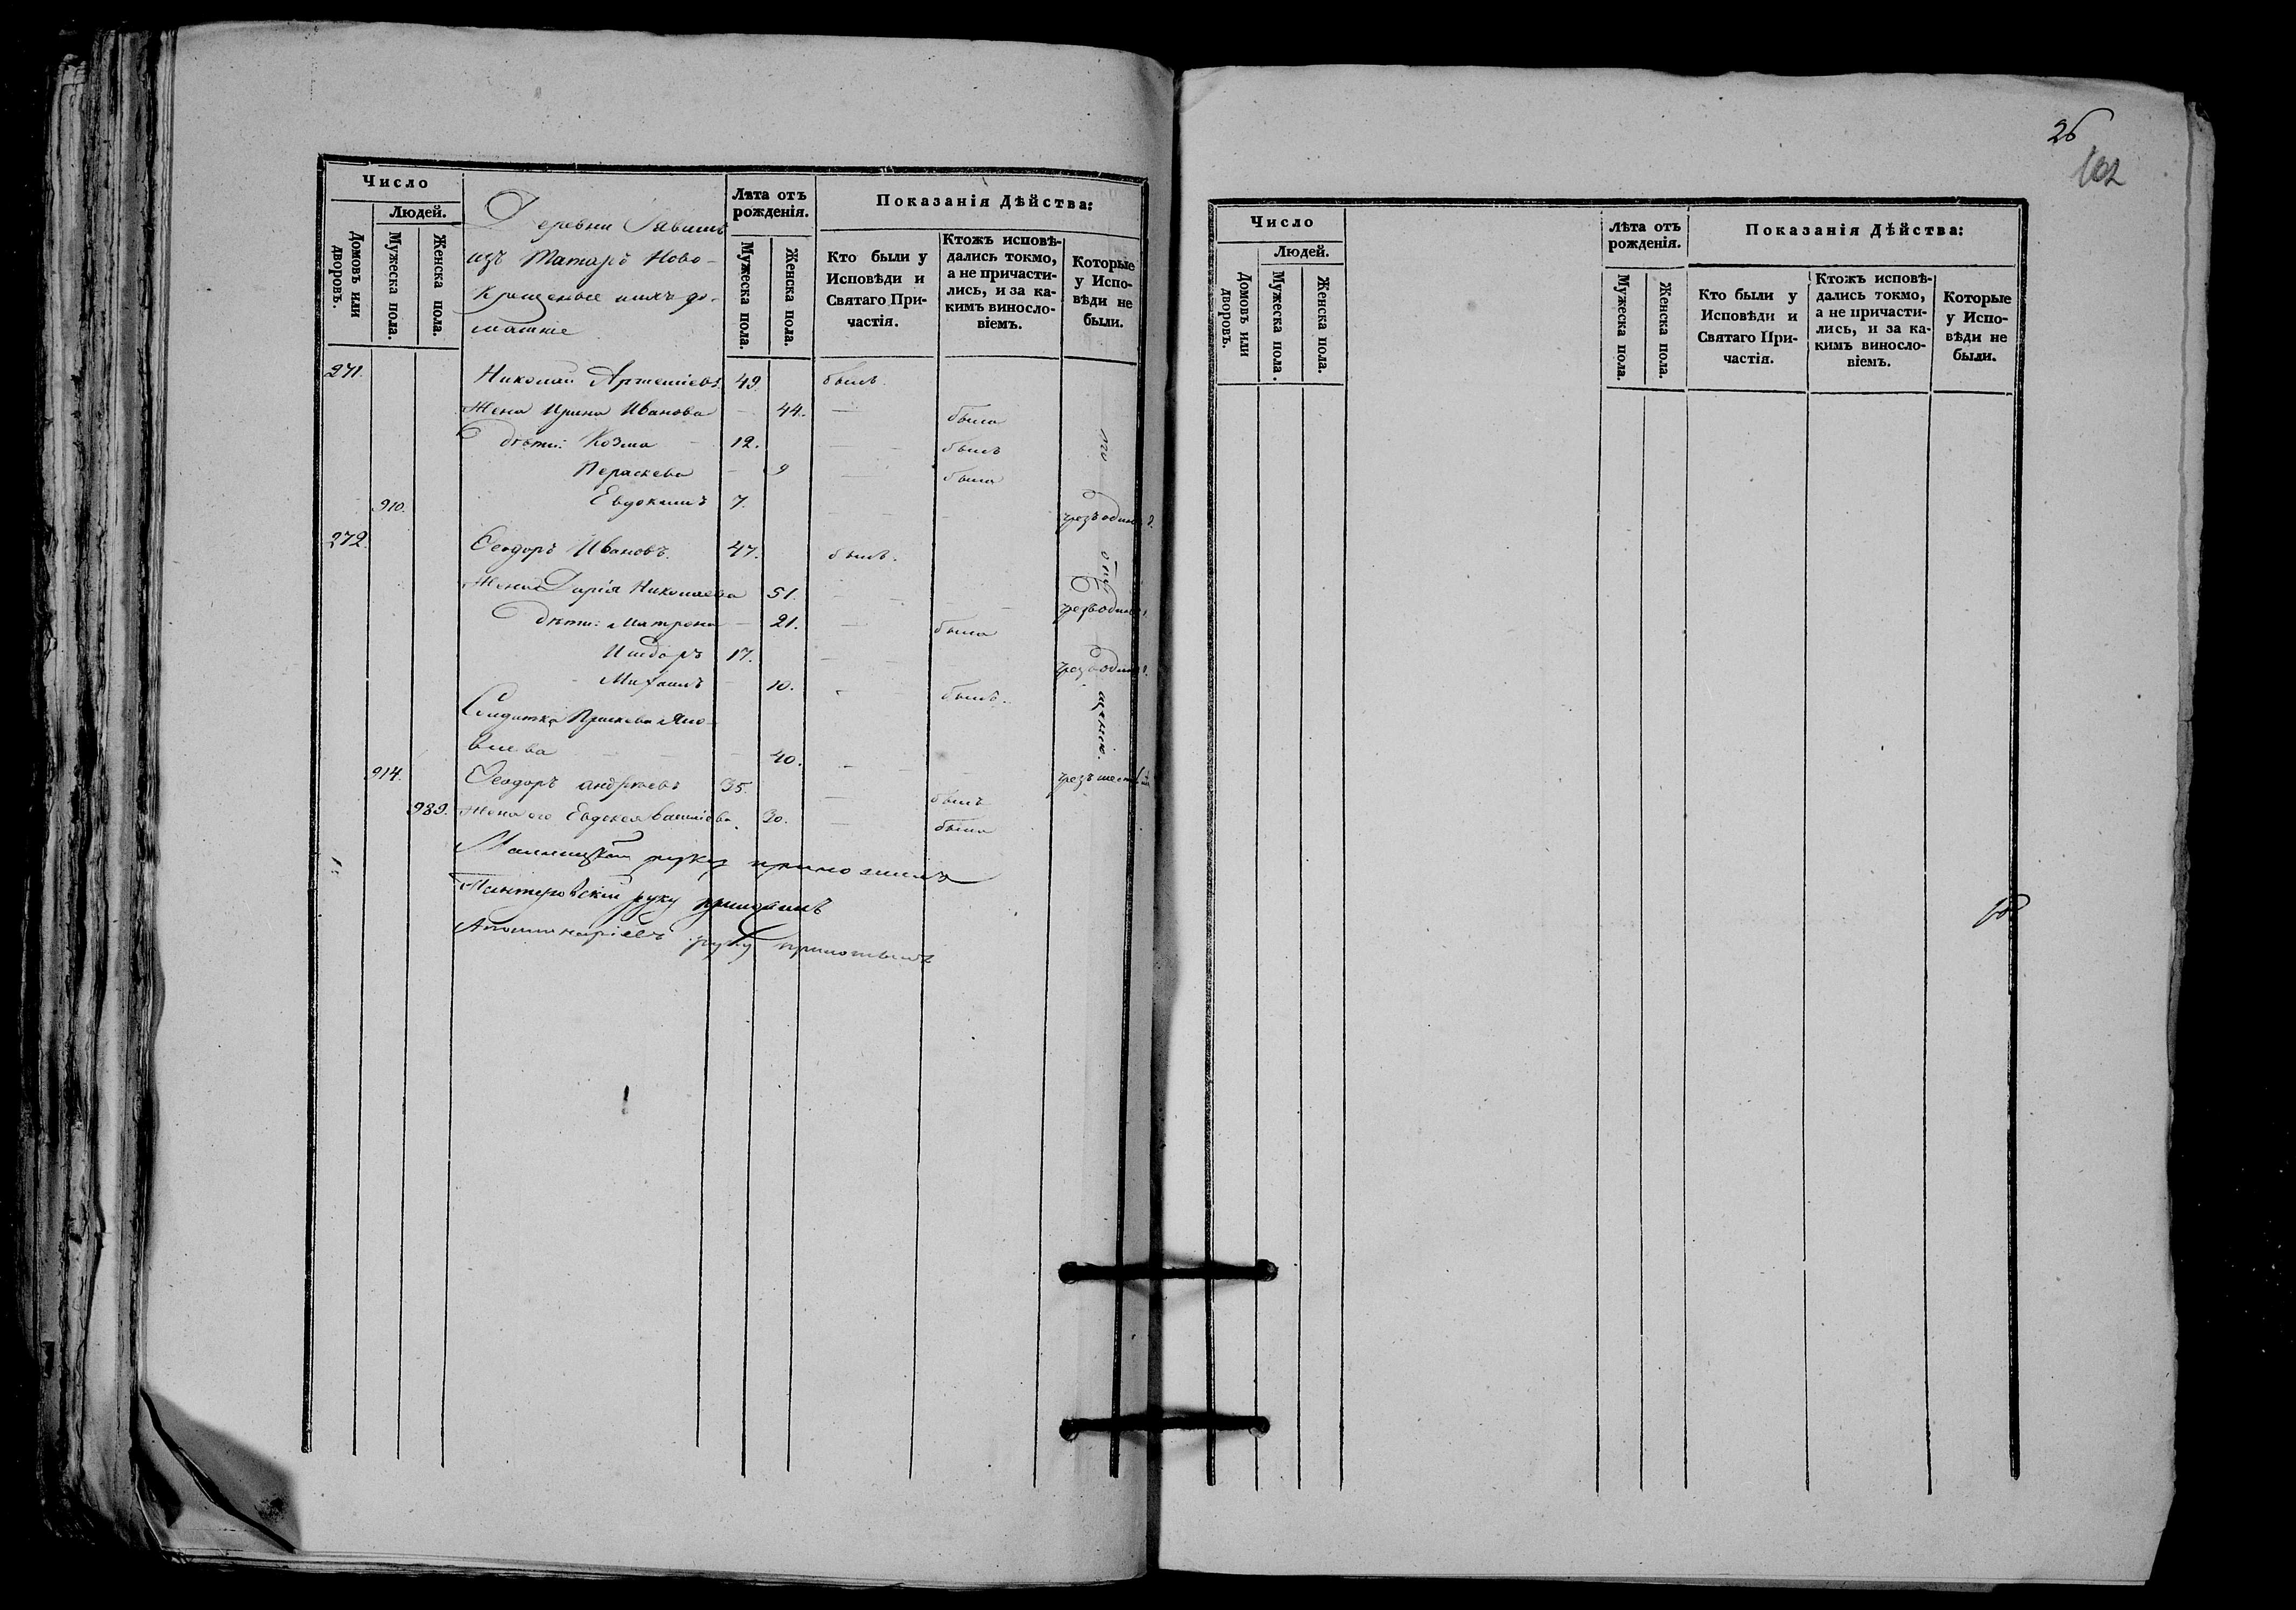 Число
Людей.
Домовъ или дворовъ.
Мужеска пола.
Женска пола.
Деревни
изъ Татаръ Ново-
крещеные ихъ до-
машніе
Лѣта отъ рожденія.
Мужеска пола.
Женска пола.
Показанія Дѣйства:
Кто были у Исповѣди и Святаго Причастія.
Ктожъ исповѣдались токмо, а не причастились, и за какимъ винословіемъ.
Которые у Исповѣди не были.
271. Николай Артеміевъ 49. былъ.
Жена Ирина Иванова 44. была
дѣти: Козма 12. былъ
Пераскева 9 была
910. Евдокимъ 7.
272. Ѳеодоръ Ивановъ. 47. былъ.
Жена Дарія Николаева 51.
дѣти: Матрона 21. была
Исидоръ 17.
Михаилъ 10. былъ.
Солдатка Праскева Яко-
влева 40.
914. Ѳеодоръ Андреевъ 35. былъ
989. Жена его Евдокея Василіева. 30. была
руку приложилъ
руку приложилъ
руку приложилъ
26
102
Число
Людей.
Домовъ или дворовъ.
Мужеска пола.
Женска пола.
Лѣта отъ рожденія.
Мужеска пола.
Женска пола.
Показанія Дѣйства:
Кто были у Исповѣди и Святаго Причастія.
Ктожъ исповѣдались токмо, а не причастились, и за какимъ винословіемъ.
Которые у Исповѣди не были.